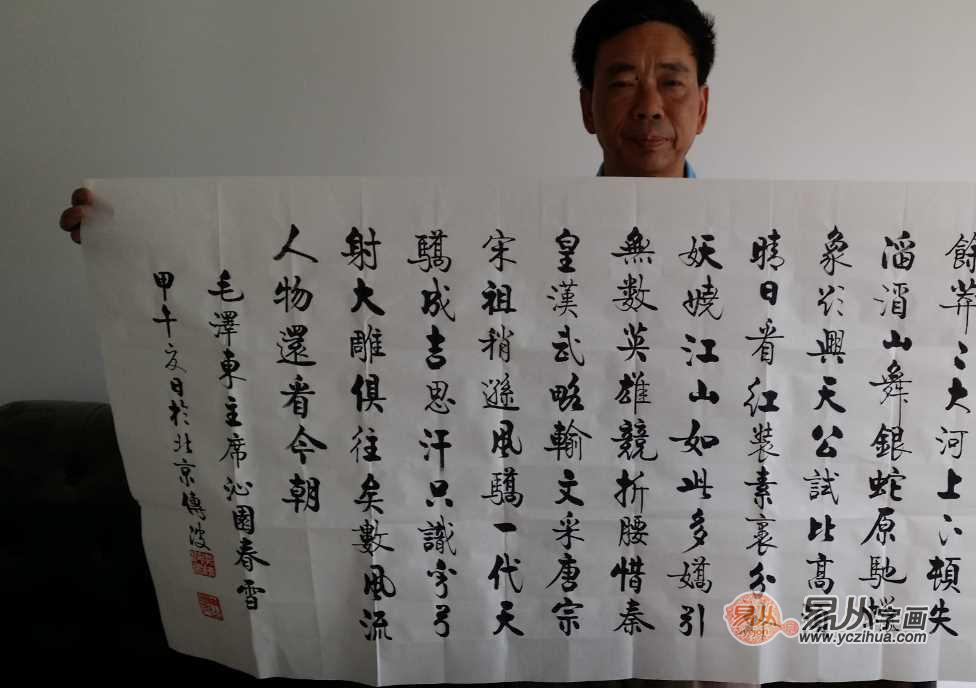 餘莽〻大河上下頓失
滔滔山舞銀蛇原馳蠟
象欲與天公試比高須
晴日看紅裝素裹分
妖嬈江山如此多嬌引
無數英雄競折腰惜秦
皇漢武略輸文采唐宗
宋祖稍遜風驕一代天
驕成吉思汗只識彎弓
射大雕俱往矣數風流
人物還看今朝
毛澤東主席沁園春雪
甲午夏日於北京傳波
易从
yicong
易从字画
www.yczihua.com